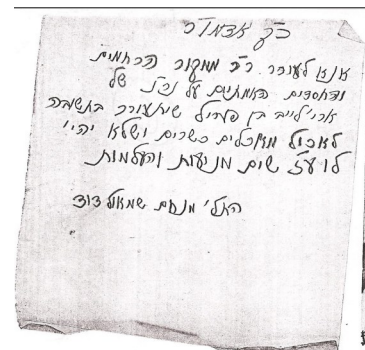 כ"ק אדמו"ר
אנא לעורר רב ממקור הרחמים
והחסדים האמתים על נב"נ של
ארי' לייב בן פערל שיתעורר בתשובה
לאכול מאכלים כשרים ושלא יהיו
לו עז שום מניעות והעלמות
האלי' מנחם שמואל דוד